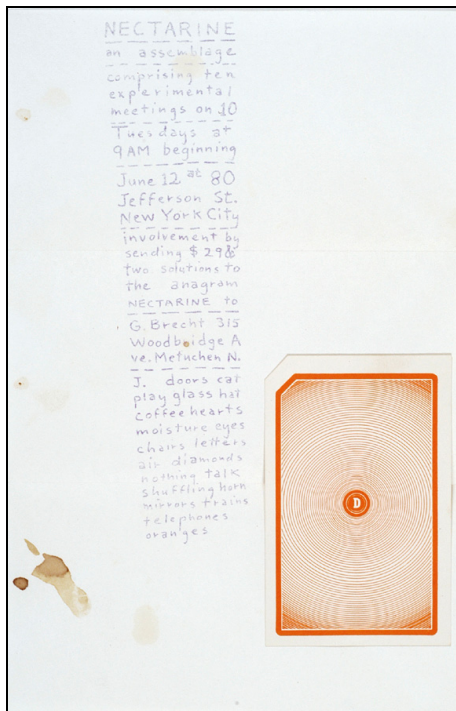 NECTARINE
an assemblage
comprising ten
experimental
meetings on 10
Tuesdays at
9AM beginning
June 12 at 80
Jefferson St.
New York City
involvement by
sending $29&
two solutions to
the anagram
NECTARINE to
G. Brecht 315
Woodbridge A
ve. Metuchen N.
J. doors cat
play glass hat
coffee hearts
moisture eyes
chairs letters
air diamonds
nothing talk
shuffling horn
mirrors trains
telephones
oranges
D